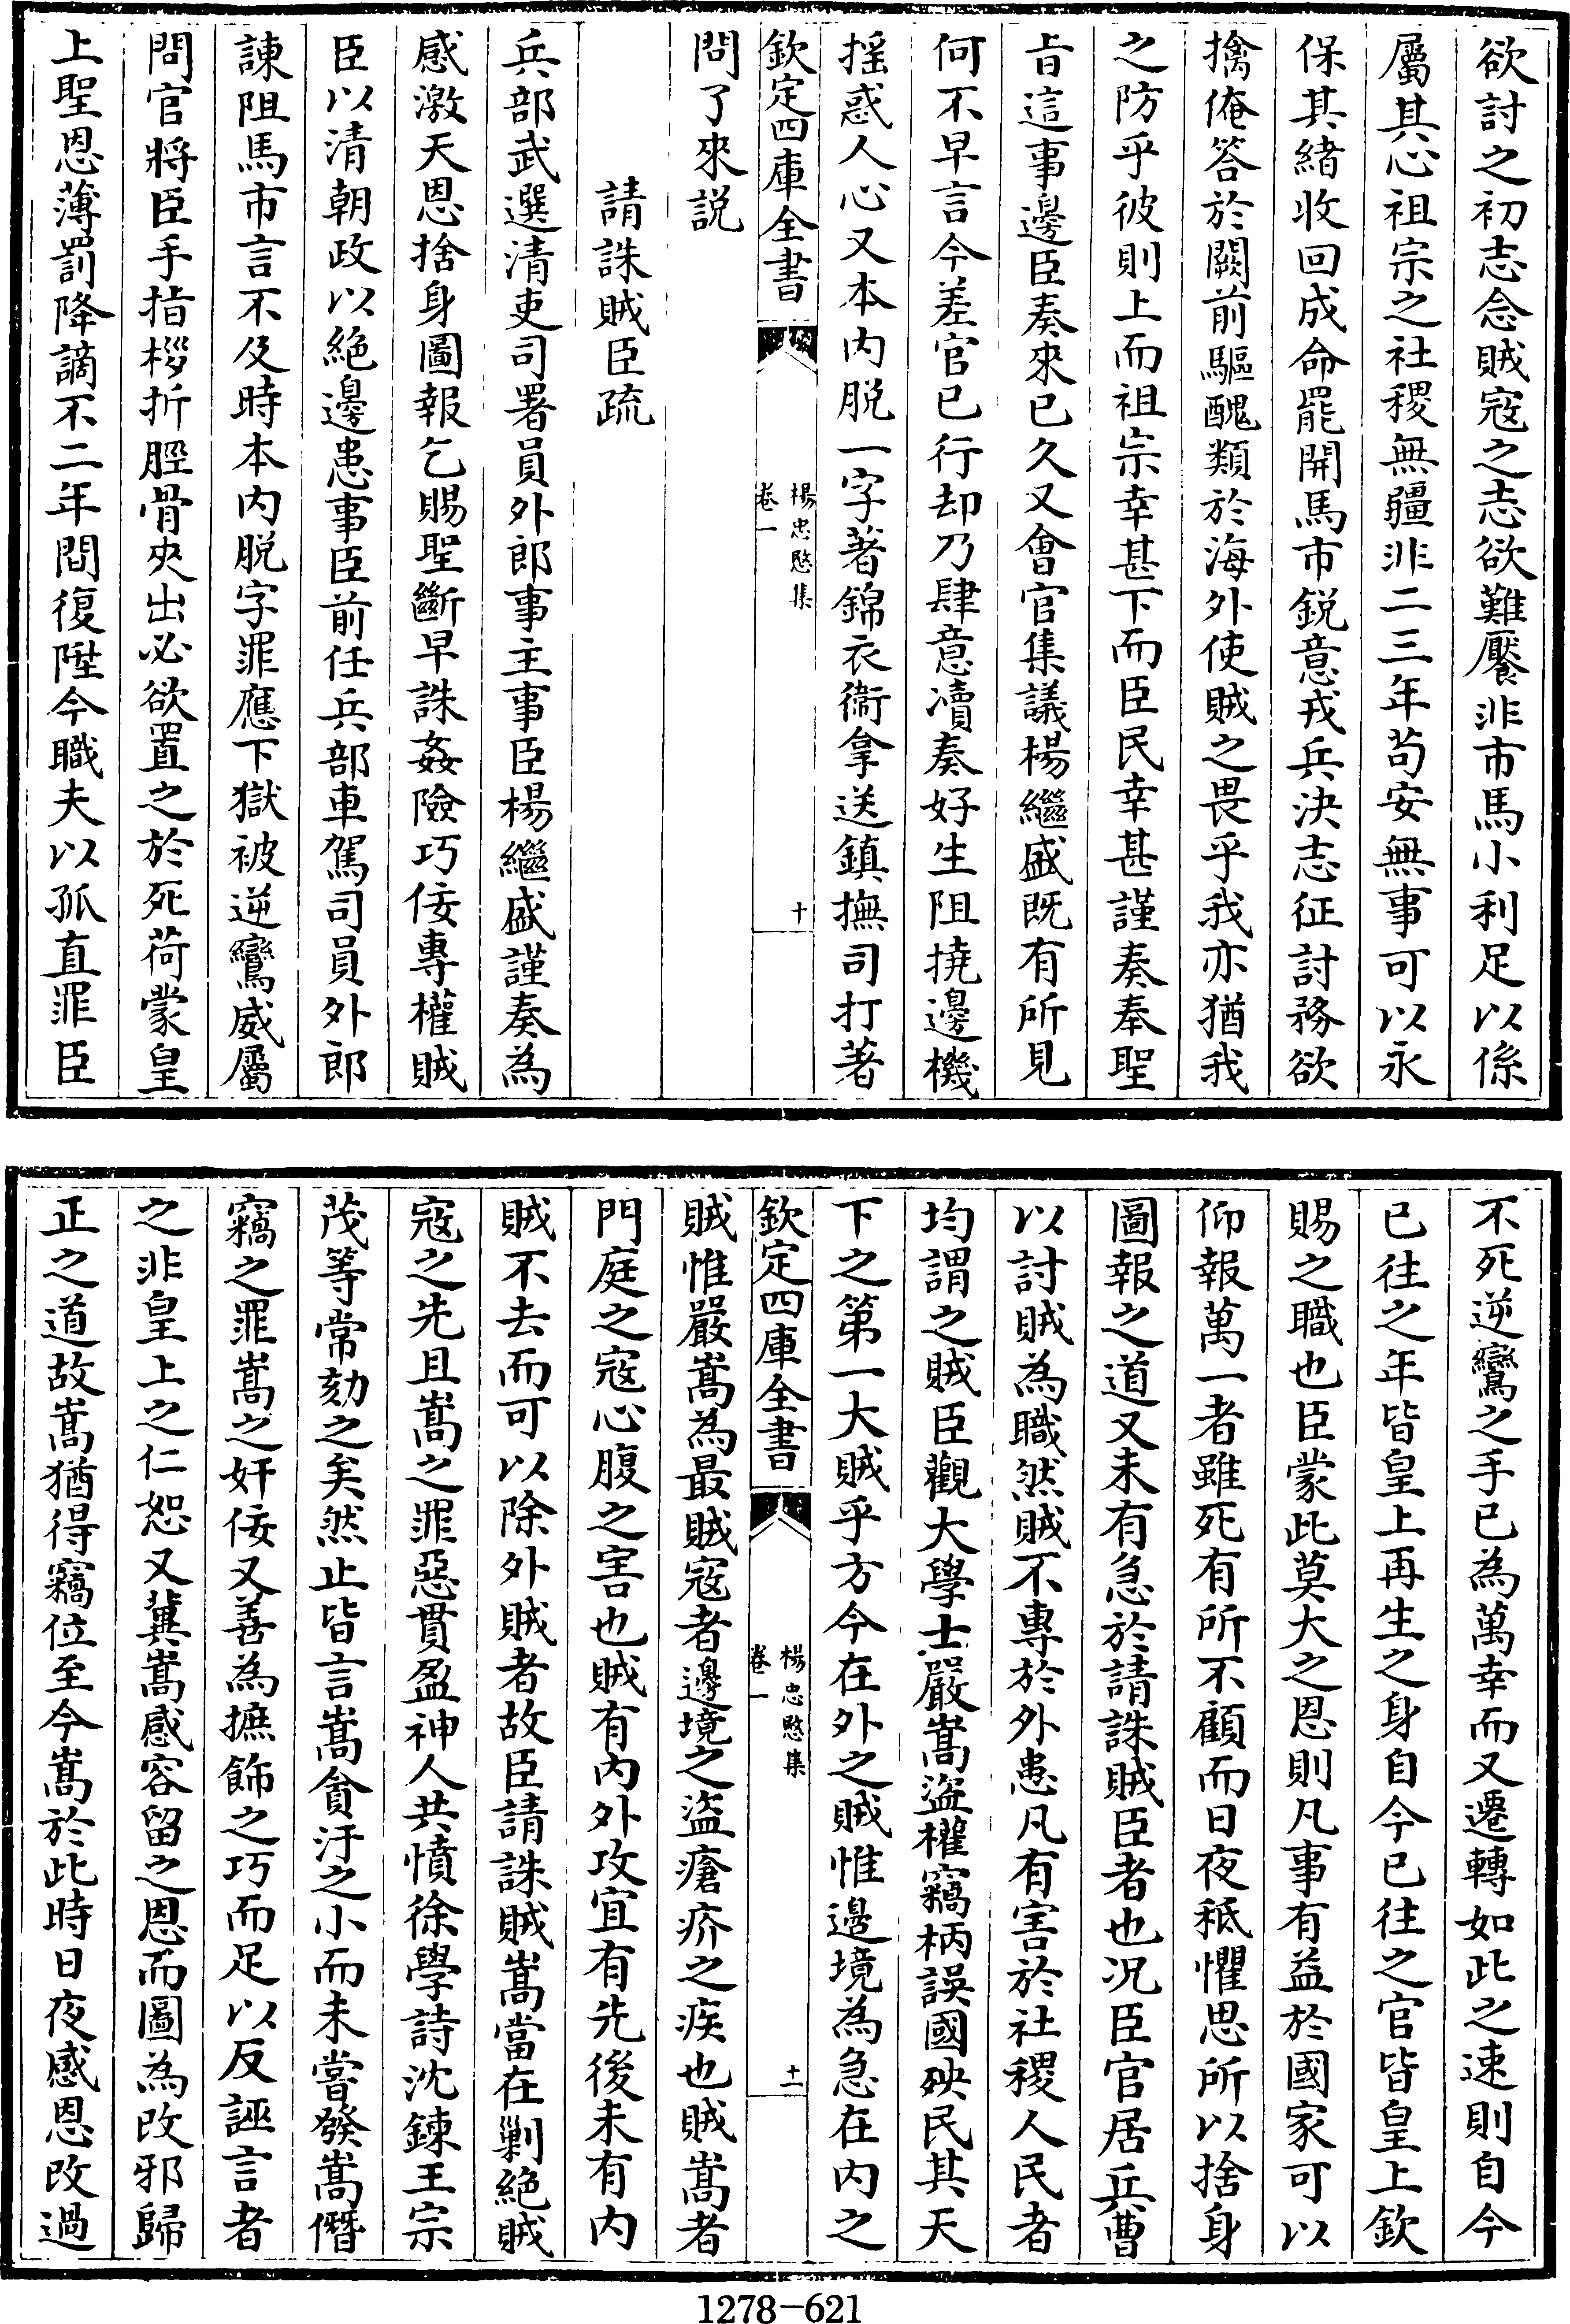 欲討之初志念賊寇之志欲難饜非市馬小利足以係
屬其心祖宗之社稷無疆非二三年苟安無事可以永
保其緒收回成命罷開馬市銳意戎兵決志征討務欲
擒俺答於闕前驅醜類於海外使賊之畏乎我亦猶我
之防乎彼則上而祖宗幸甚下而臣民幸甚謹奏奉聖
旨這事邊臣奏來已久又會官集議楊繼盛既有所見
何不早言今差官已行却乃肆意凟奏好生阻撓邊機
揺惑人心又本内脱一字著錦衣衞拿送鎮撫司打著
欽定四庫全書
楊忠愍集
卷一
十
問了來説
請誅賊臣疏
兵部武選清吏司署員外郎事主事臣楊繼盛謹奏為
感激天恩捨身圖報乞賜聖斷早誅姦險巧佞專權賊
臣以清朝政以絶邊患事臣前任兵部車駕司員外郎
諫阻馬市言不及時本内脱字罪應下獄被逆鸞威屬
問官將臣手指桚折脛骨夾出必欲置之於死荷蒙皇
上聖恩薄罰降謫不二年間復陞今職夫以孤直罪臣
不死逆鸞之手已為萬幸而又遷轉如此之速則自今
已往之年皆皇上再生之身自今已往之官皆皇上欽
賜之職也臣蒙此莫大之恩則凡事有益於國家可以
仰報萬一者雖死有所不顧而日夜祗懼思所以捨身
圖報之道又未有急於請誅賊臣者也况臣官居兵曹
以討賊為職然賊不專於外患凡有害於社稷人民者
均謂之賊臣觀大學士嚴嵩盜權竊柄誤國殃民其天
下之第一大賊乎方今在外之賊惟邊境為急在内之
欽定四庫全書
楊忠愍集
卷一
十一
賊惟嚴嵩為最賊寇者邊境之盜瘡疥之疾也賊嵩者
門庭之寇心腹之害也賊有内外攻宜有先後未有内
賊不去而可以除外賊者故臣請誅賊嵩當在剿絶賊
寇之先且嵩之罪惡貫盈神人共憤徐學詩沈鍊王宗
茂等常劾之矣然止皆言嵩貪汙之小而未嘗發嵩僭
竊之罪嵩之奸佞又善為摭飾之巧而足以反誣言者
之非皇上之仁恕又冀嵩感容留之恩而圖為改邪歸
正之道故嵩猶得竊位至今嵩於此時日夜感恩改過
1278-621